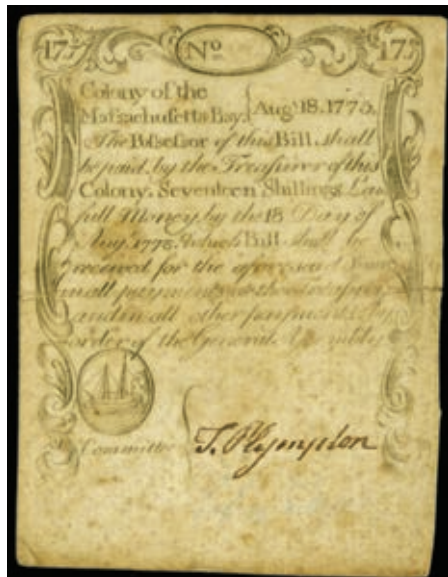 177 No 177
Colony of the
Massachusetts Bay. } Augt. 18. 1775.
The Possessor of this Bill shall
be paid by the Treasurer of this
Colony, Seventeen Shillings Law
full Money by the 18 Day of
Aug. 1778. which Bill shall be
received for the aforesaid Sum
in all payments at the
and in all other payments. By
order of the General Assembly
Committee { T. Plympton